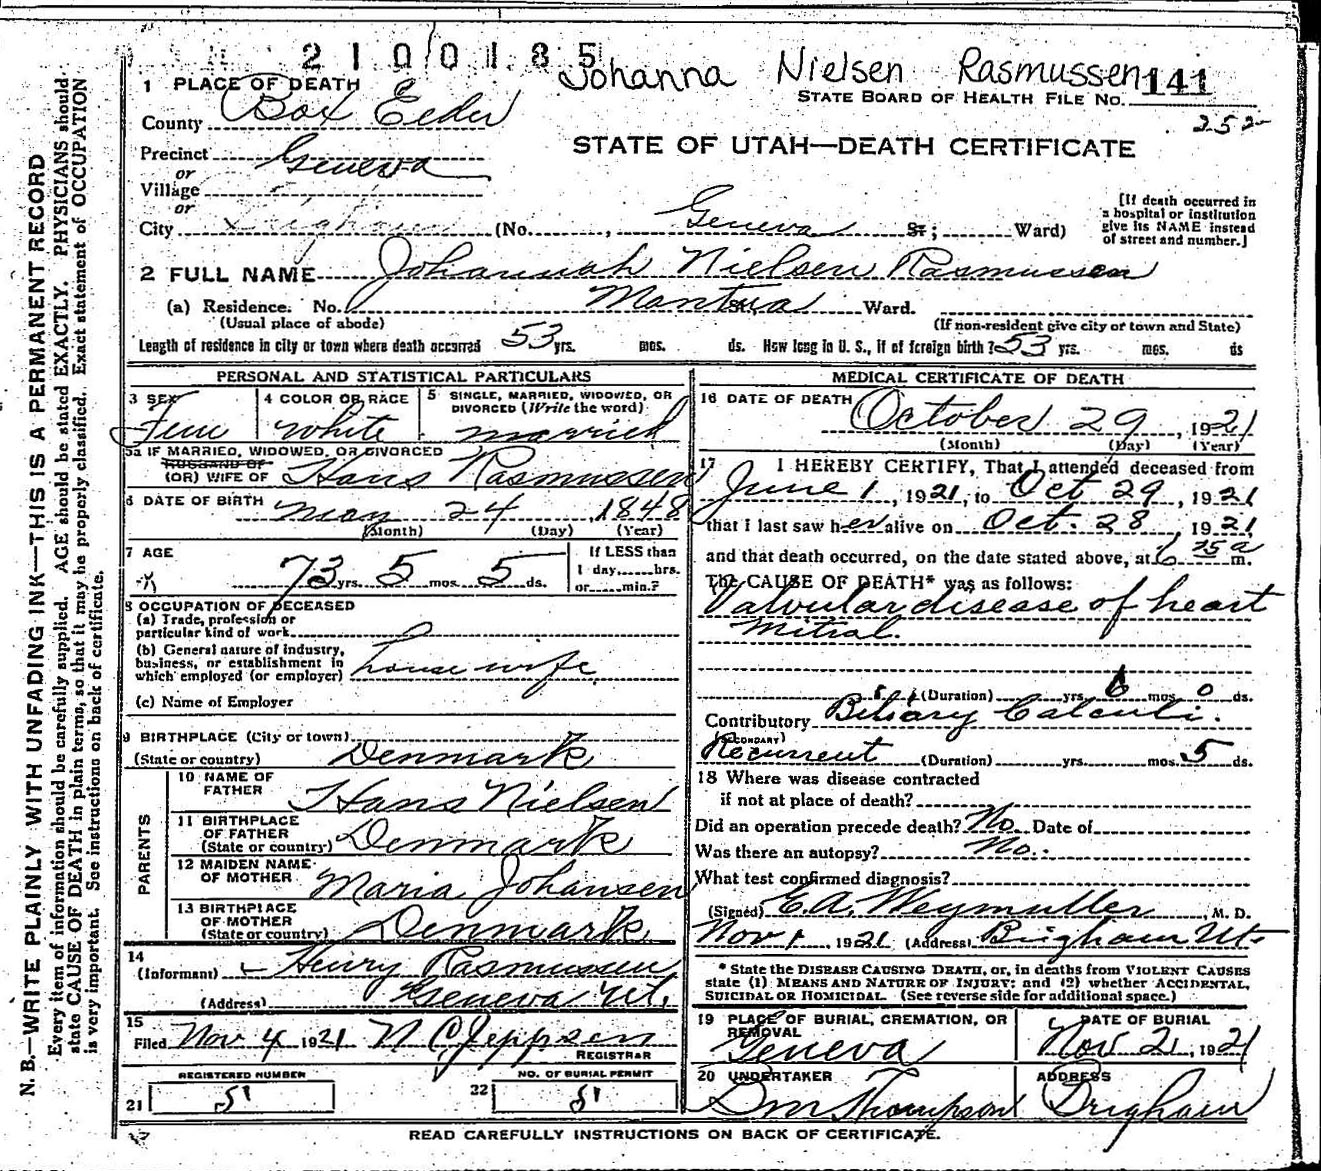 2100185
Johanna Nielsen Rasmussen 141
1 PLACE OF DEATH
STATE BOARD OF HEALTH FILE No.
252
County Box Elder
STATE OF UTAH—DEATH CERTIFICATE
Precinct Geneva
or
Village
or
City Brigham (No. , Geneva St; Ward)
[If death occurred in
a hospital or institution
give its NAME instead
of street and number.]
2 FULL NAME Johannah Nielsen Rasmussen
(a) Residence. No. Mantua Ward.
(Usual place of abode) (If non-resident give city or town and State)
Length of residence in city or town where death occurred 53 yrs. mos. ds. How long in U. S., if of foreign birth? 53 yrs. mos. ds
PERSONAL AND STATISTICAL PARTICULARS
3 SEX Fem
4 COLOR OR RACE white
5 SINGLE, MARRIED, WIDOWED, OR
DIVORCED (Write the word)
married
5a IF MARRIED, WIDOWED, OR DIVORCED
HUSBAND OF
(OR) WIFE OF Hans Rasmussen
6 DATE OF BIRTH may 24, 1848
(Month) (Day) (Year)
7 AGE
73 yrs. 5 mos. 5 ds.
If LESS than
1 day, hrs.
or min.?
8 OCCUPATION OF DECEASED
(a) Trade, profession or
particular kind of work
(b) General nature of industry,
business, or establishment in
which employed (or employer) house wife
(c) Name of Employer
9 BIRTHPLACE (City or town)
(State or country) Denmark
PARENTS
10 NAME OF
FATHER Hans Nielsen
11 BIRTHPLACE
OF FATHER
(State or country) Denmark
12 MAIDEN NAME
OF MOTHER Maria Johansen
13 BIRTHPLACE
OF MOTHER
(State or country) Denmark
14
(Informant) Henry Rasmussen
(Address) Geneva Ut.
15
Filed Nov 4 1921 N C Jeppsen
REGISTRAR
REGISTERED NUMBER
21 51
NO. OF BURIAL PERMIT
22 51
MEDICAL CERTIFICATE OF DEATH
16 DATE OF DEATH October 29, 1921
(Month) (Day) (Year)
17 I HEREBY CERTIFY, That I attended deceased from
June 1, 1921, to Oct 29, 1921
that I last saw her alive on Oct. 28, 1921
and that death occurred, on the date stated above, at 6 a m.
The CAUSE OF DEATH* was as follows:
Valvular disease of heart
Mitral.
(Duration) yrs. 6 mos 0 ds.
Contributory Biliary Calculi.
(SECONDARY)
Recurrent (Duration) yrs. mos. 5 ds.
18 Where was disease contracted
if not at place of death?
Did an operation precede death? No. Date of
Was there an autopsy? No.
What test confirmed diagnosis?
(Signed) E.A. Weymuller, M. D.
Nov 1, 1921 (Address) Brigham Ut.
* State the DISEASE CAUSING DEATH, or, in deaths from VIOLENT CAUSES
state (1) MEANS AND NATURE OF INJURY; and (2) whether ACCIDENTAL,
SUICIDAL OR HOMICIDAL. (See reverse side for additional space.)
19 PLACE OF BURIAL, CREMATION, OR
REMOVAL
Geneva
DATE OF BURIAL
Nov 2, 1921
20 UNDERTAKER
Thompson
ADDRESS
Brigham
READ CAREFULLY INSTRUCTIONS ON BACK OF CERTIFICATE.
N. B.—WRITE PLAINLY WITH UNFADING INK—THIS IS A PERMANENT RECORD
Every item of information should be carefully supplied. AGE should be stated EXACTLY. PHYSICIANS should
state CAUSE OF DEATH in plain terms, so that it may be properly classified. Exact statement of OCCUPATION
is very important. See instructions on back of certificate.